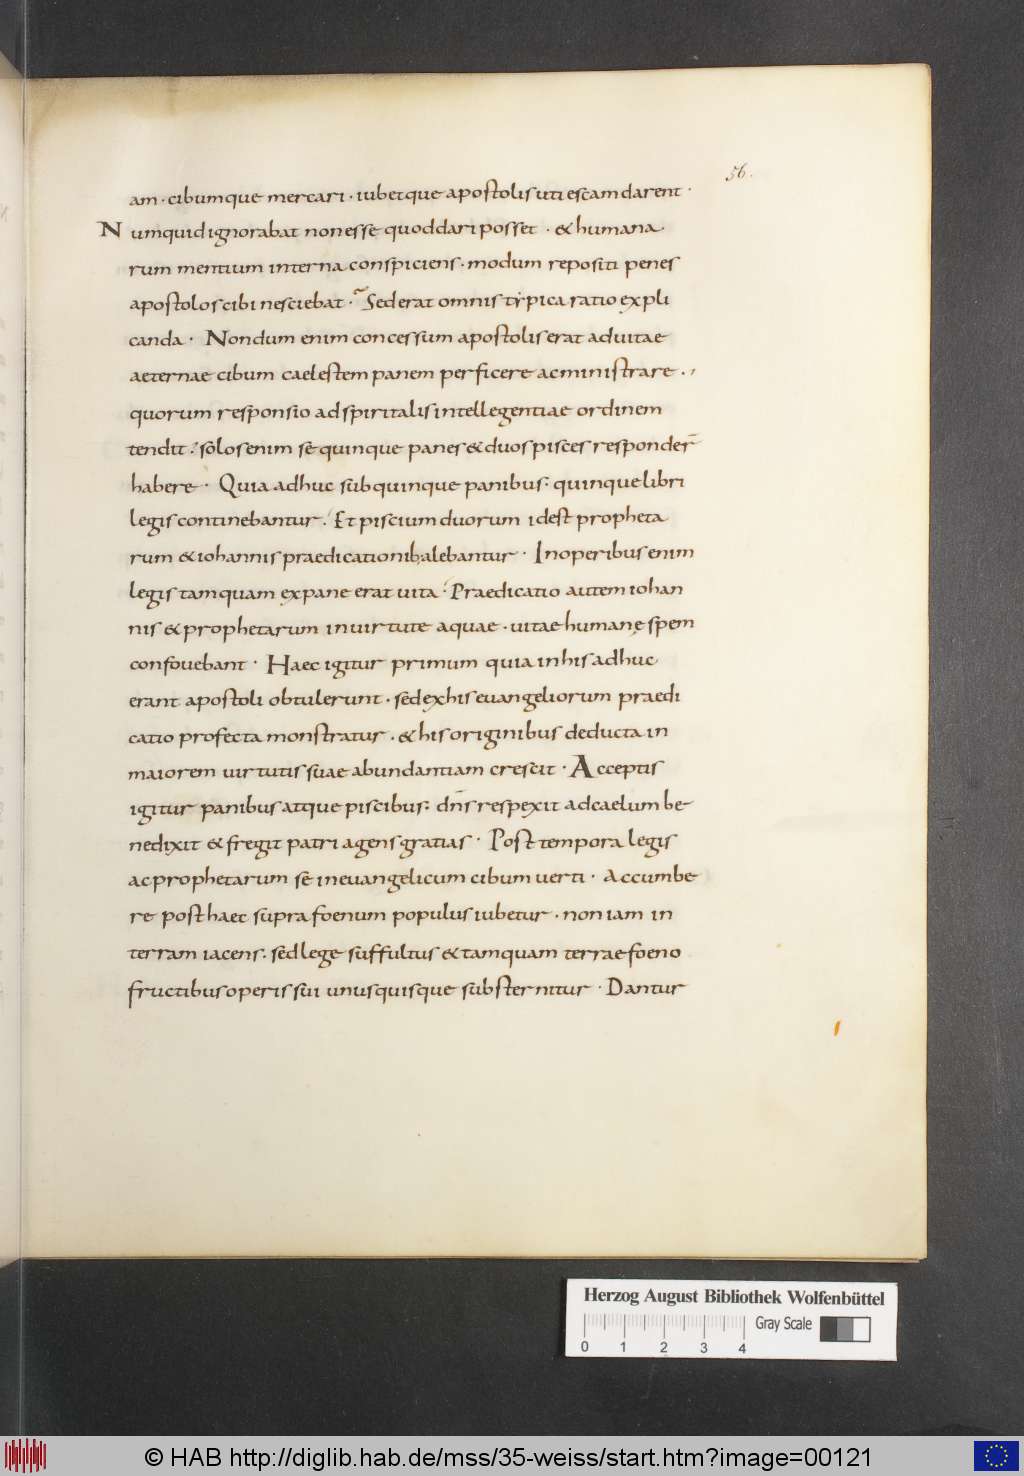 56.
am · cibumque mercari · iubetque apostolis uti escam darent ·
Numquid ignorabat non esse quod dari posset · & humana
rum mentium interna conspiciens · modum repositi penes
apostolos cibi nesciebat · Sed erat omnis typica ratio expli
canda · Nondum enim concessum apostolis erat ad uitae
aeternae cibum caelestem panem perficere ac ministrare ·,
quorum responsio ad spiritalis intellegentiae ordinem
tendit · solos enim se quinque panes & duos pisces responder̄
habere · Quia adhuc sub quinque panibus: quinque libri
legis continebantur. Et piscium duorum id est propheta
rum & iohannis praedicationib; alebantur · In operibus enim
legis tamquam ex pane erat uita · Praedicatio autem iohan
nis & prophetarum in uirtute aquae · uitae humanę spem
confouebant · Haec igitur primum quia in his adhuc
erant apostoli obtulerunt · sed ex his euangeliorum praedi
catio profecta monstratur · & his originibus deducta in
maiorem uirtutis suae abundantiam crescit · Acceptis
igitur panibus atque piscibus: dn̄s respexit ad caelum be
nedixit & fregit patri agens gratias · Post tempora legis
ac prophetarum se in euangelicum cibum uerti · Accumbe
re post haec supra foenum populus iubetur · non iam in
terram iacens · sed lege suffultus & tamquam terrae foeno
fructibus operis sui unusquisque substernitur · Dantur
Herzog August Bibliothek Wolfenbüttel
Gray Scale
0 1 2 3 4
© HAB http://diglib.hab.de/mss/35-weiss/start.htm?image=00121